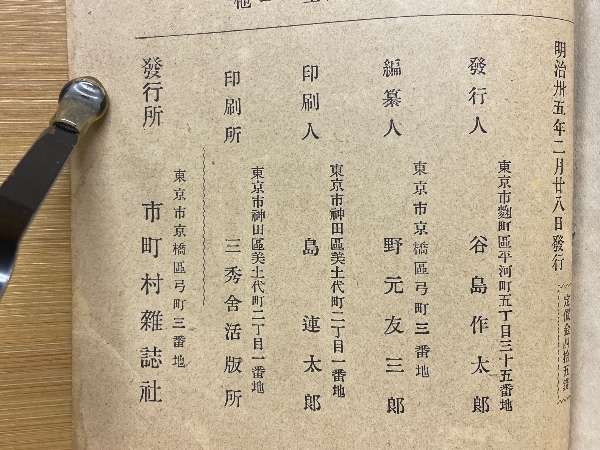 明治卅五年二月廿八日發行
定價金四拾五錢
東京市麴町區平河町五丁目三十五番地
發行人 谷島作太郎
東京市京橋區弓町三番地
編纂人 野元友三郎
東京市神田區美土代町二丁目一番地
印刷人 島連太郎
東京市神田區美土代町二丁目一番地
印刷所 三秀舍活版所
東京市京橋區弓町三番地
發行所 市町村雜誌社